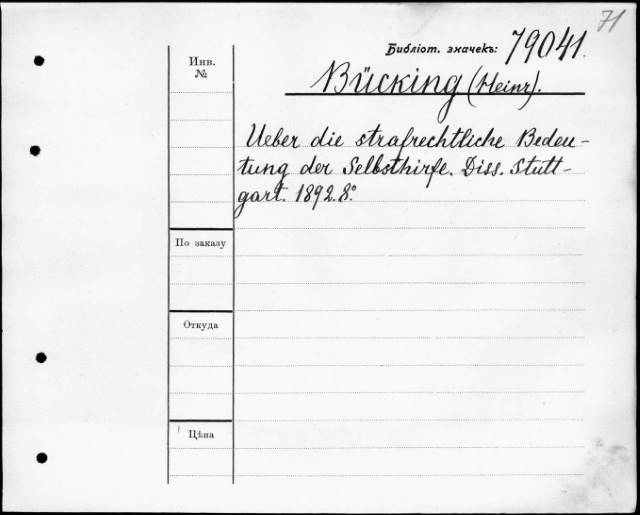 71
Библіот. значекъ: 79041.
Инв.
№
Bücking (Heinr).
Ueber die strafrechtliche Bedeu-
tung der Selbsthirfe. Diss. Stutt-
gart. 1892. 8°
По заказу
Откуда
Цѣна